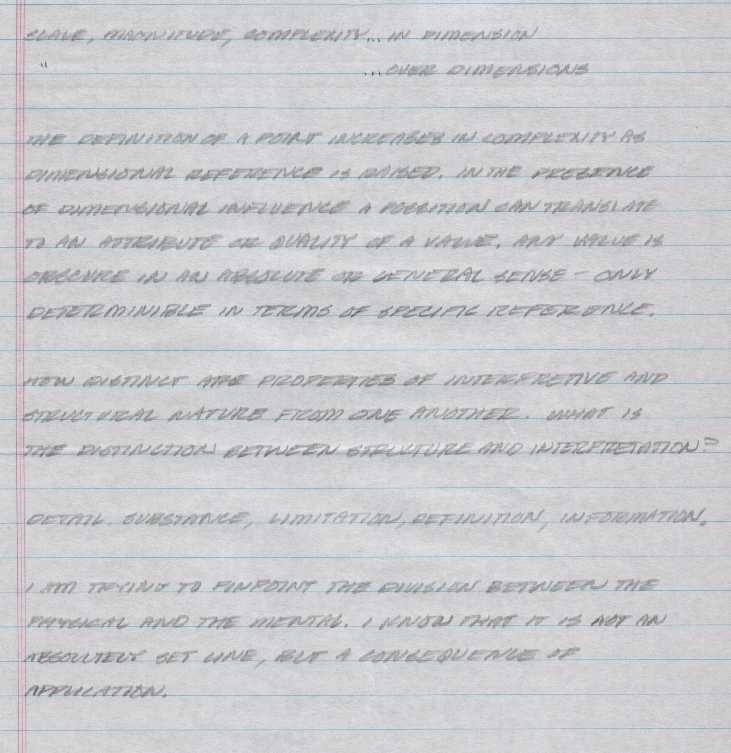 SCALE, MAGNITUDE, COMPLEXITY... IN DIMENSION
" ...OVER DIMENSIONS
THE DEFINITION OF A POINT INCREASES IN COMPLEXITY AS
DIMENSIONAL REFERENCE IS RAISED. IN THE PRESENCE
OF DIMENSIONAL INFLUENCE A POSSITION CAN TRANSLATE
TO AN ATTRIBUTE OR QUALITY OF A VALUE. ANY VALUE IS
OBSCURE IN AN ABSOLUTE OR GENERAL SENSE - ONLY
DETERMINIBLE IN TERMS OF SPECIFIC REFERENCE.
HOW DISTINCT ARE PROPERTIES OF INTERPRETIVE AND
STRUCTURAL NATURE FROM ONE ANOTHER. WHAT IS
THE DISTINCTION BETWEEN STRUCTURE AND INTERPRETATION?
DETAIL. SUBSTANCE, LIMITATION, DEFINITION, INFORMATION.
I AM TRYING TO PINPOINT THE DIVISION BETWEEN THE
PHYSICAL AND THE MENTAL. I KNOW THAT IT IS NOT AN
ABSOLUTELY SET LINE, BUT A CONSEQUENCE OF
APPLICATION.